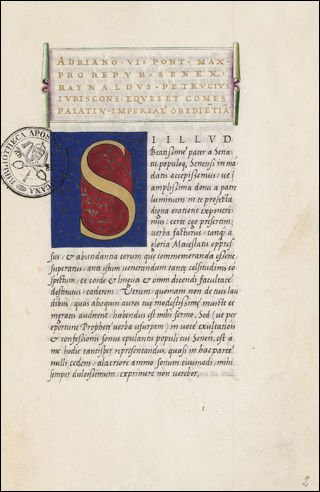 ADRIANO · VI · PONT · MAX ·
PRO REPVB · SENEN ·
RAYNALDVS · PETRVCIVS
IVRISCONS · EQVES ET COMES
PALATIN · IMPERIAE OBEDIĒTIĀ
S I ILLVD
Beatissime pater a Sena
tu populoq; Senensi in mā
datis accepissemus, ut
amplissima dona a patre
luminum in te profecta
digna oratione exponere
mus: certe ego presertim
verba facturus, tanq̄ a
gloria Maiestatis oppres
sus, & abundantia eorum que commemoranda essent
superatus, ante istum venerandum tantę celsitudinis cō
spectum, et corde & lingua & omni dicendi facultate
destitutus, caderem. Verum, quoniam non de tuis lau
dibus, quas alioquin aures tuę modestissimę invicte et
ingrate audirent, habendus est mihi sermo. Sed (ut per
oportune Prophetę verba usurpem) in voce exultationis
& confessionis sonus epulantis populi tui Senen, est a
me hodie tantisper representandus, quasi in hac parte
nulli cedens, alacriore animo sonum eiusmodi, mihi
semper dulcissimum, exprimere non vereber.
1
2